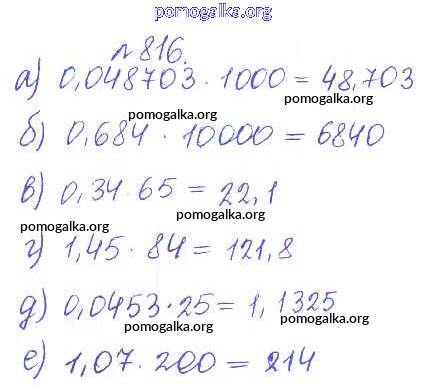 pomogalka.org
№ 816.
а) 0,048703 · 1000 = 48,703
pomogalka.org
б) 0,684 · 10000 = 6840
pomogalka.org
в) 0,34 · 65 = 22,1
pomogalka.org
pomogalka.org
г) 1,45 · 84 = 121,8
pomogalka.org
д) 0,0453 · 25 = 1,1325
pomogalka.org
е) 1,07 · 200 = 214